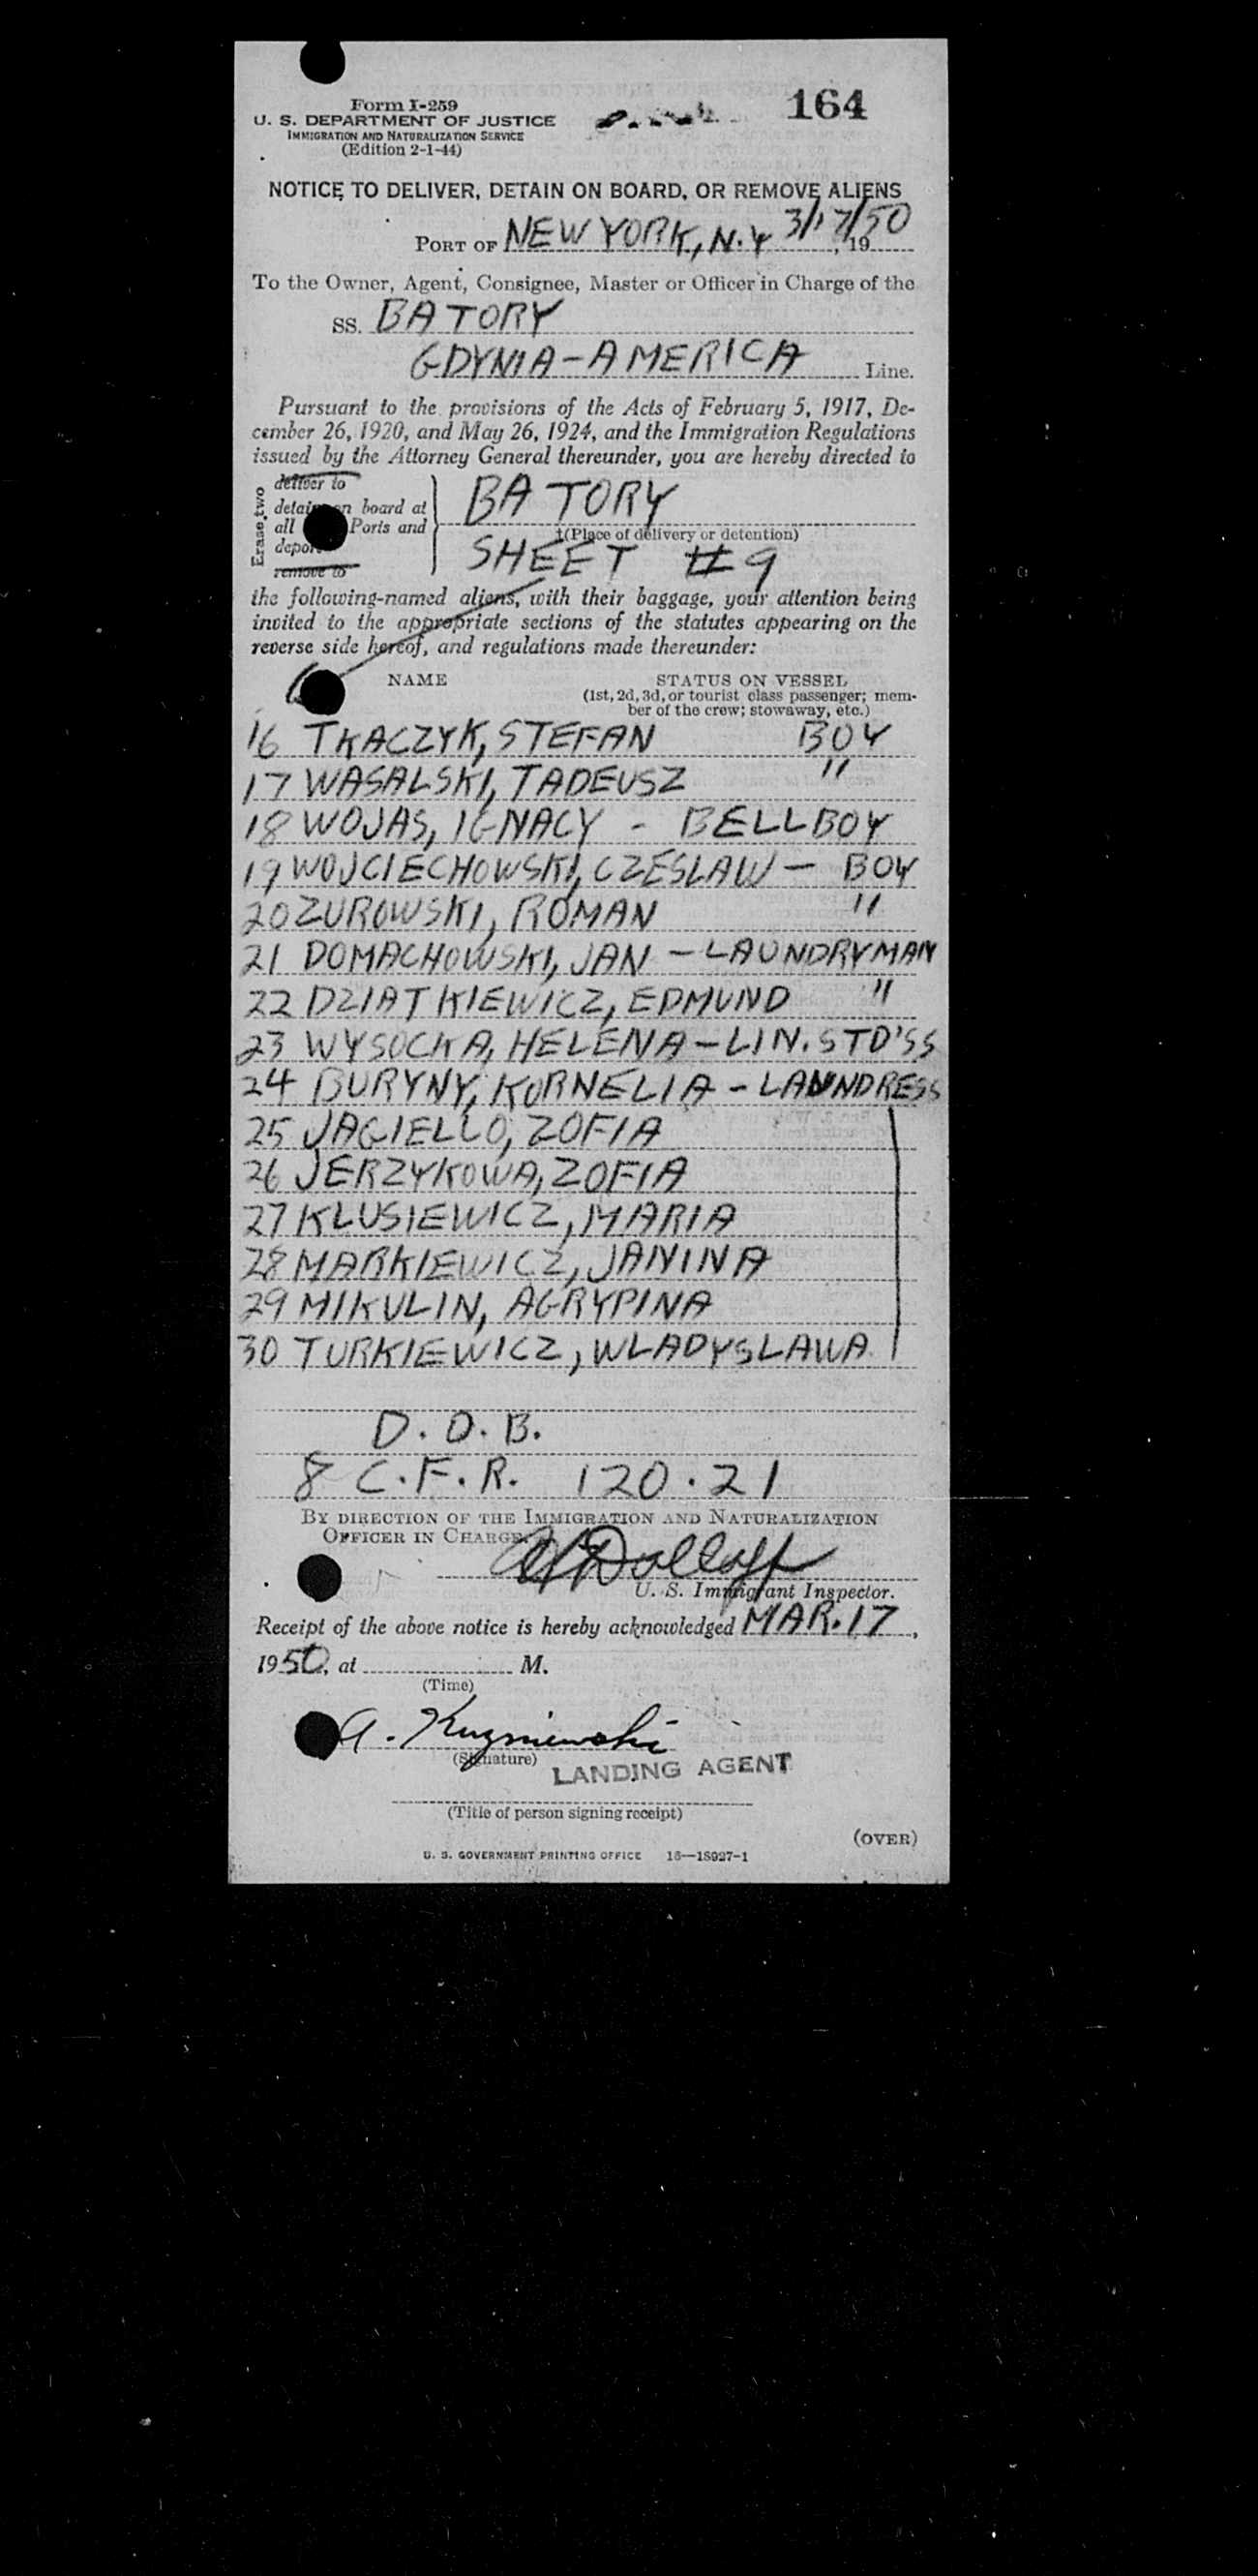 Form I-259
164
U. S. DEPARTMENT OF JUSTICE
IMMIGRATION AND NATURALIZATION SERVICE
(Edition 2-1-44)
NOTICE TO DELIVER, DETAIN ON BOARD, OR REMOVE ALIENS
PORT OF NEW YORK, N.Y 3/17/50, 19
To the Owner, Agent, Consignee, Master or Officer in Charge of the
SS. BATORY
GDYNIA-AMERICA Line.
Pursuant to the provisions of the Acts of February 5, 1917, De-
cember 26, 1920, and May 26, 1924, and the Immigration Regulations
issued by the Attorney General thereunder, you are hereby directed to
Erase two
deliver to
detain on board at
all Ports and
deport
remove to
BATORY
†(Place of delivery or detention)
SHEET #9
the following-named aliens, with their baggage, your attention being
invited to the appropriate sections of the statutes appearing on the
reverse side hereof, and regulations made thereunder:
NAME STATUS ON VESSEL
(1st, 2d, 3d, or tourist class passenger; mem-
ber of the crew; stowaway, etc.)
16 TKACZYK, STEFAN BOY
17 WASALSKI, TADEUSZ "
18 WOJAS, IGNACY - BELLBOY
19 WOJCIECHOWSKI, CZESLAW - BOY
20 ZUROWSKI, ROMAN "
21 DOMACHOWSKI, JAN - LAUNDRYMAN
22 DZIATKIEWICZ, EDMUND "
23 WYSOCKA, HELENA - LIN. STD'SS
24 BURYNY, KORNELIA - LAUNDRESS
25 JAGIELLO, ZOFIA
26 JERZYKOWA, ZOFIA
27 KLUSIEWICZ, MARIA
28 MARKIEWICZ, JANINA
29 MIKULIN, AGRYPINA
30 TURKIEWICZ, WLADYSLAWA
D.O.B.
8 C.F.R. 120.21
BY DIRECTION OF THE IMMIGRATION AND NATURALIZATION
OFFICER IN CHARGE
Dolloff
U. S. Immigrant Inspector.
Receipt of the above notice is hereby acknowledged MAR. 17,
1950, at M.
(Time)
A. Kuzniewski
(Signature)
LANDING AGENT
(Title of person signing receipt)
(OVER)
U. S. GOVERNMENT PRINTING OFFICE 16—18927-1